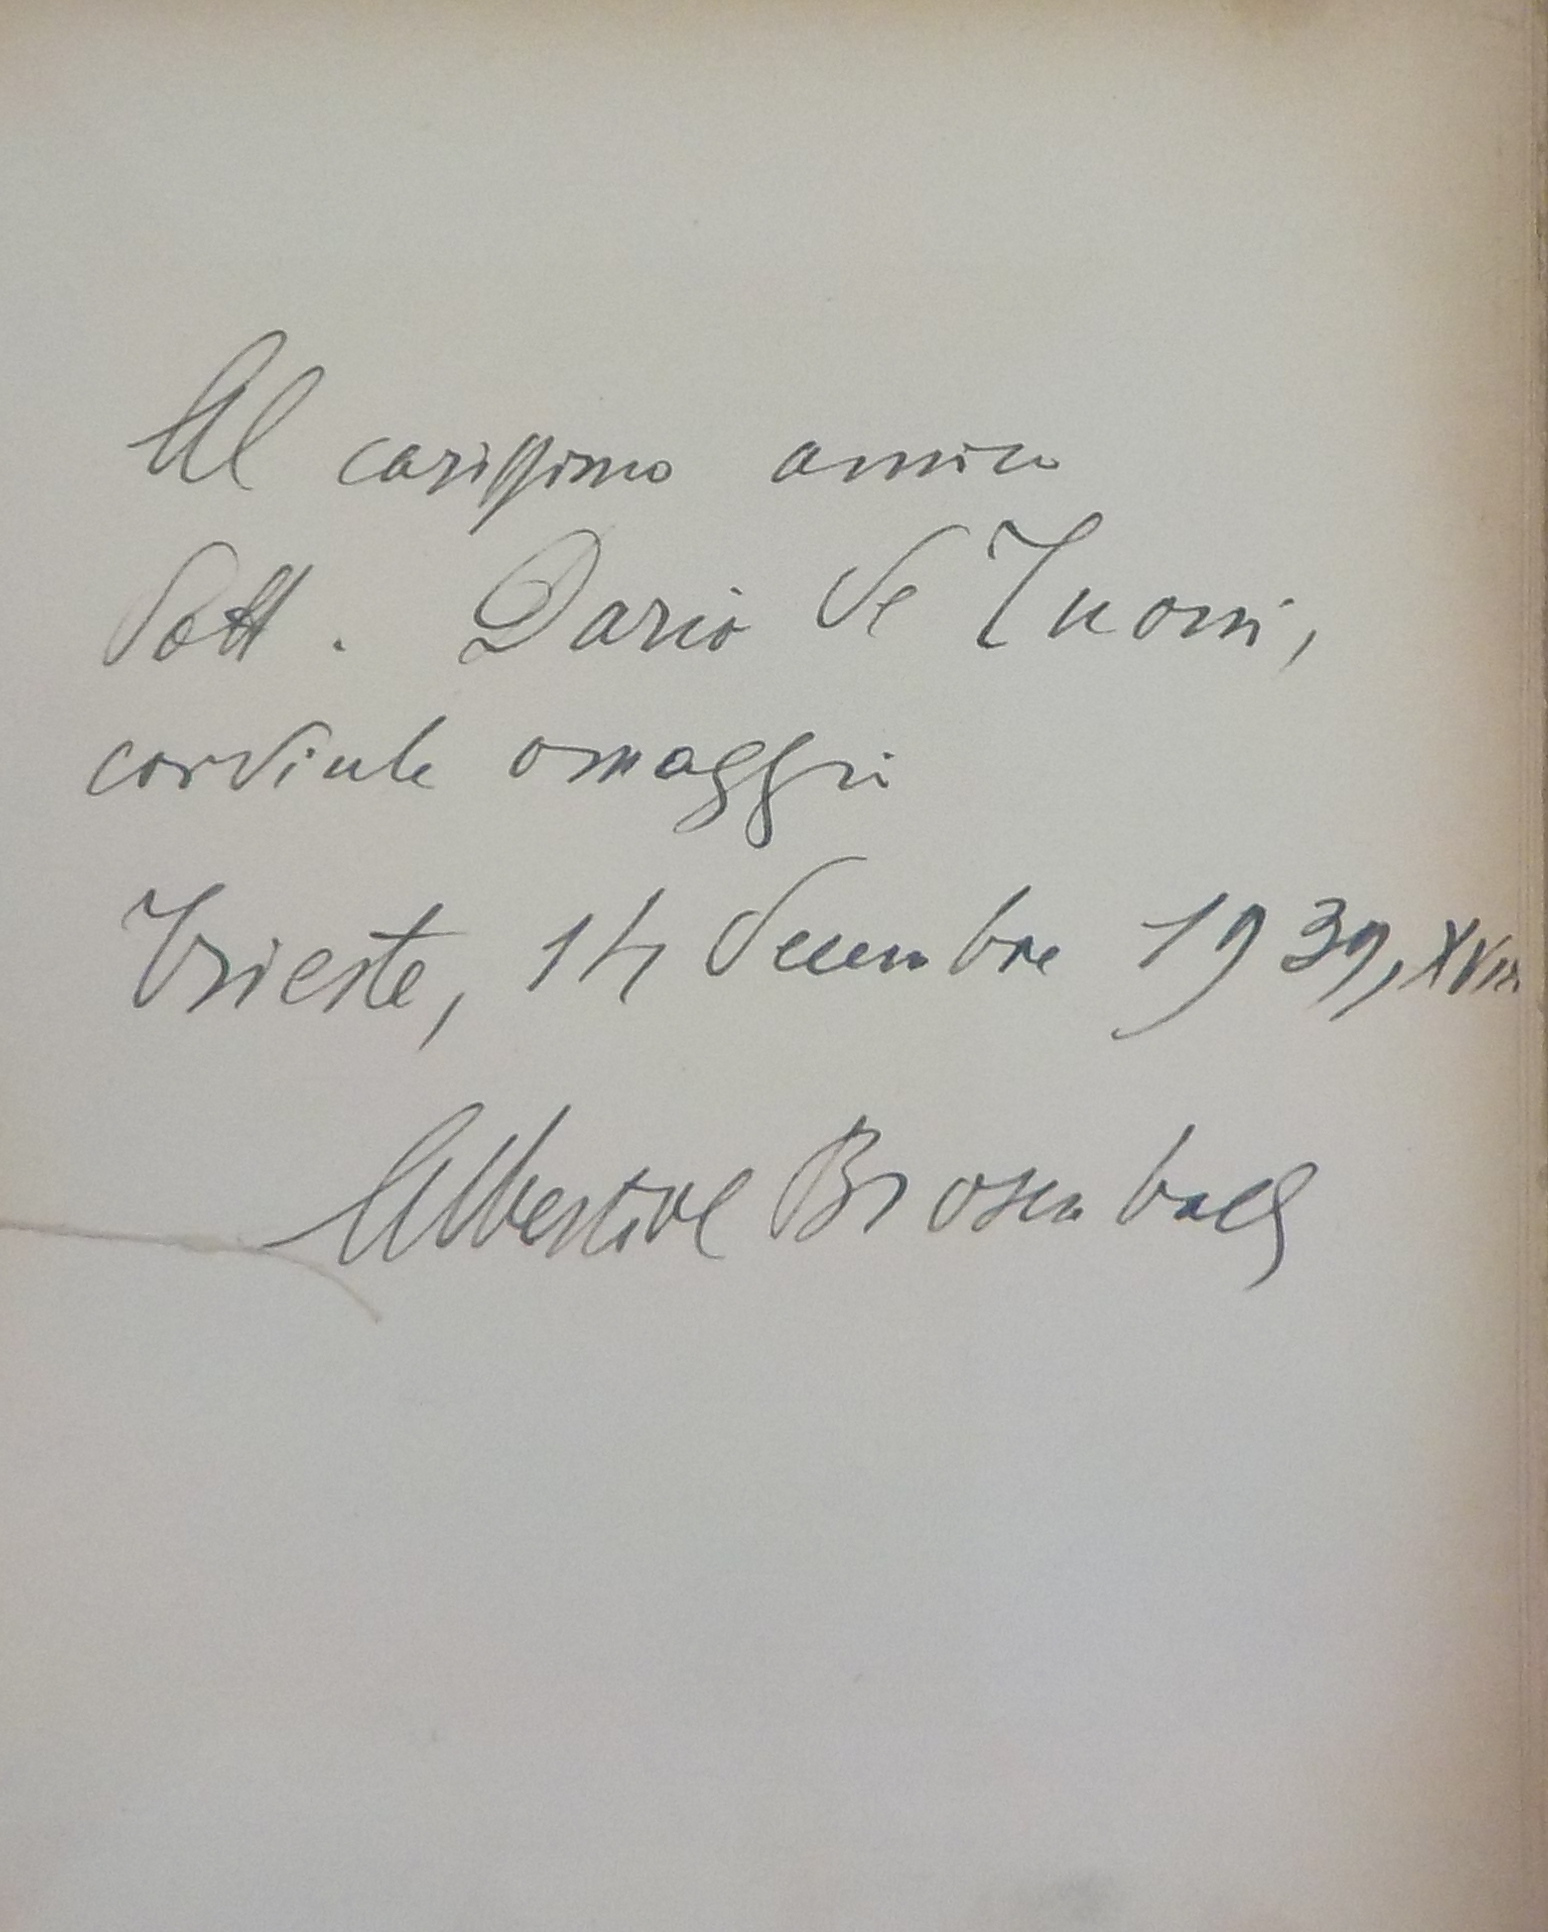 Al carissimo amico
dott. Dario de Tuoni,
cordiale omaggio
Trieste, 14 decembre 1939, XVIII
Albertine Brosenbach